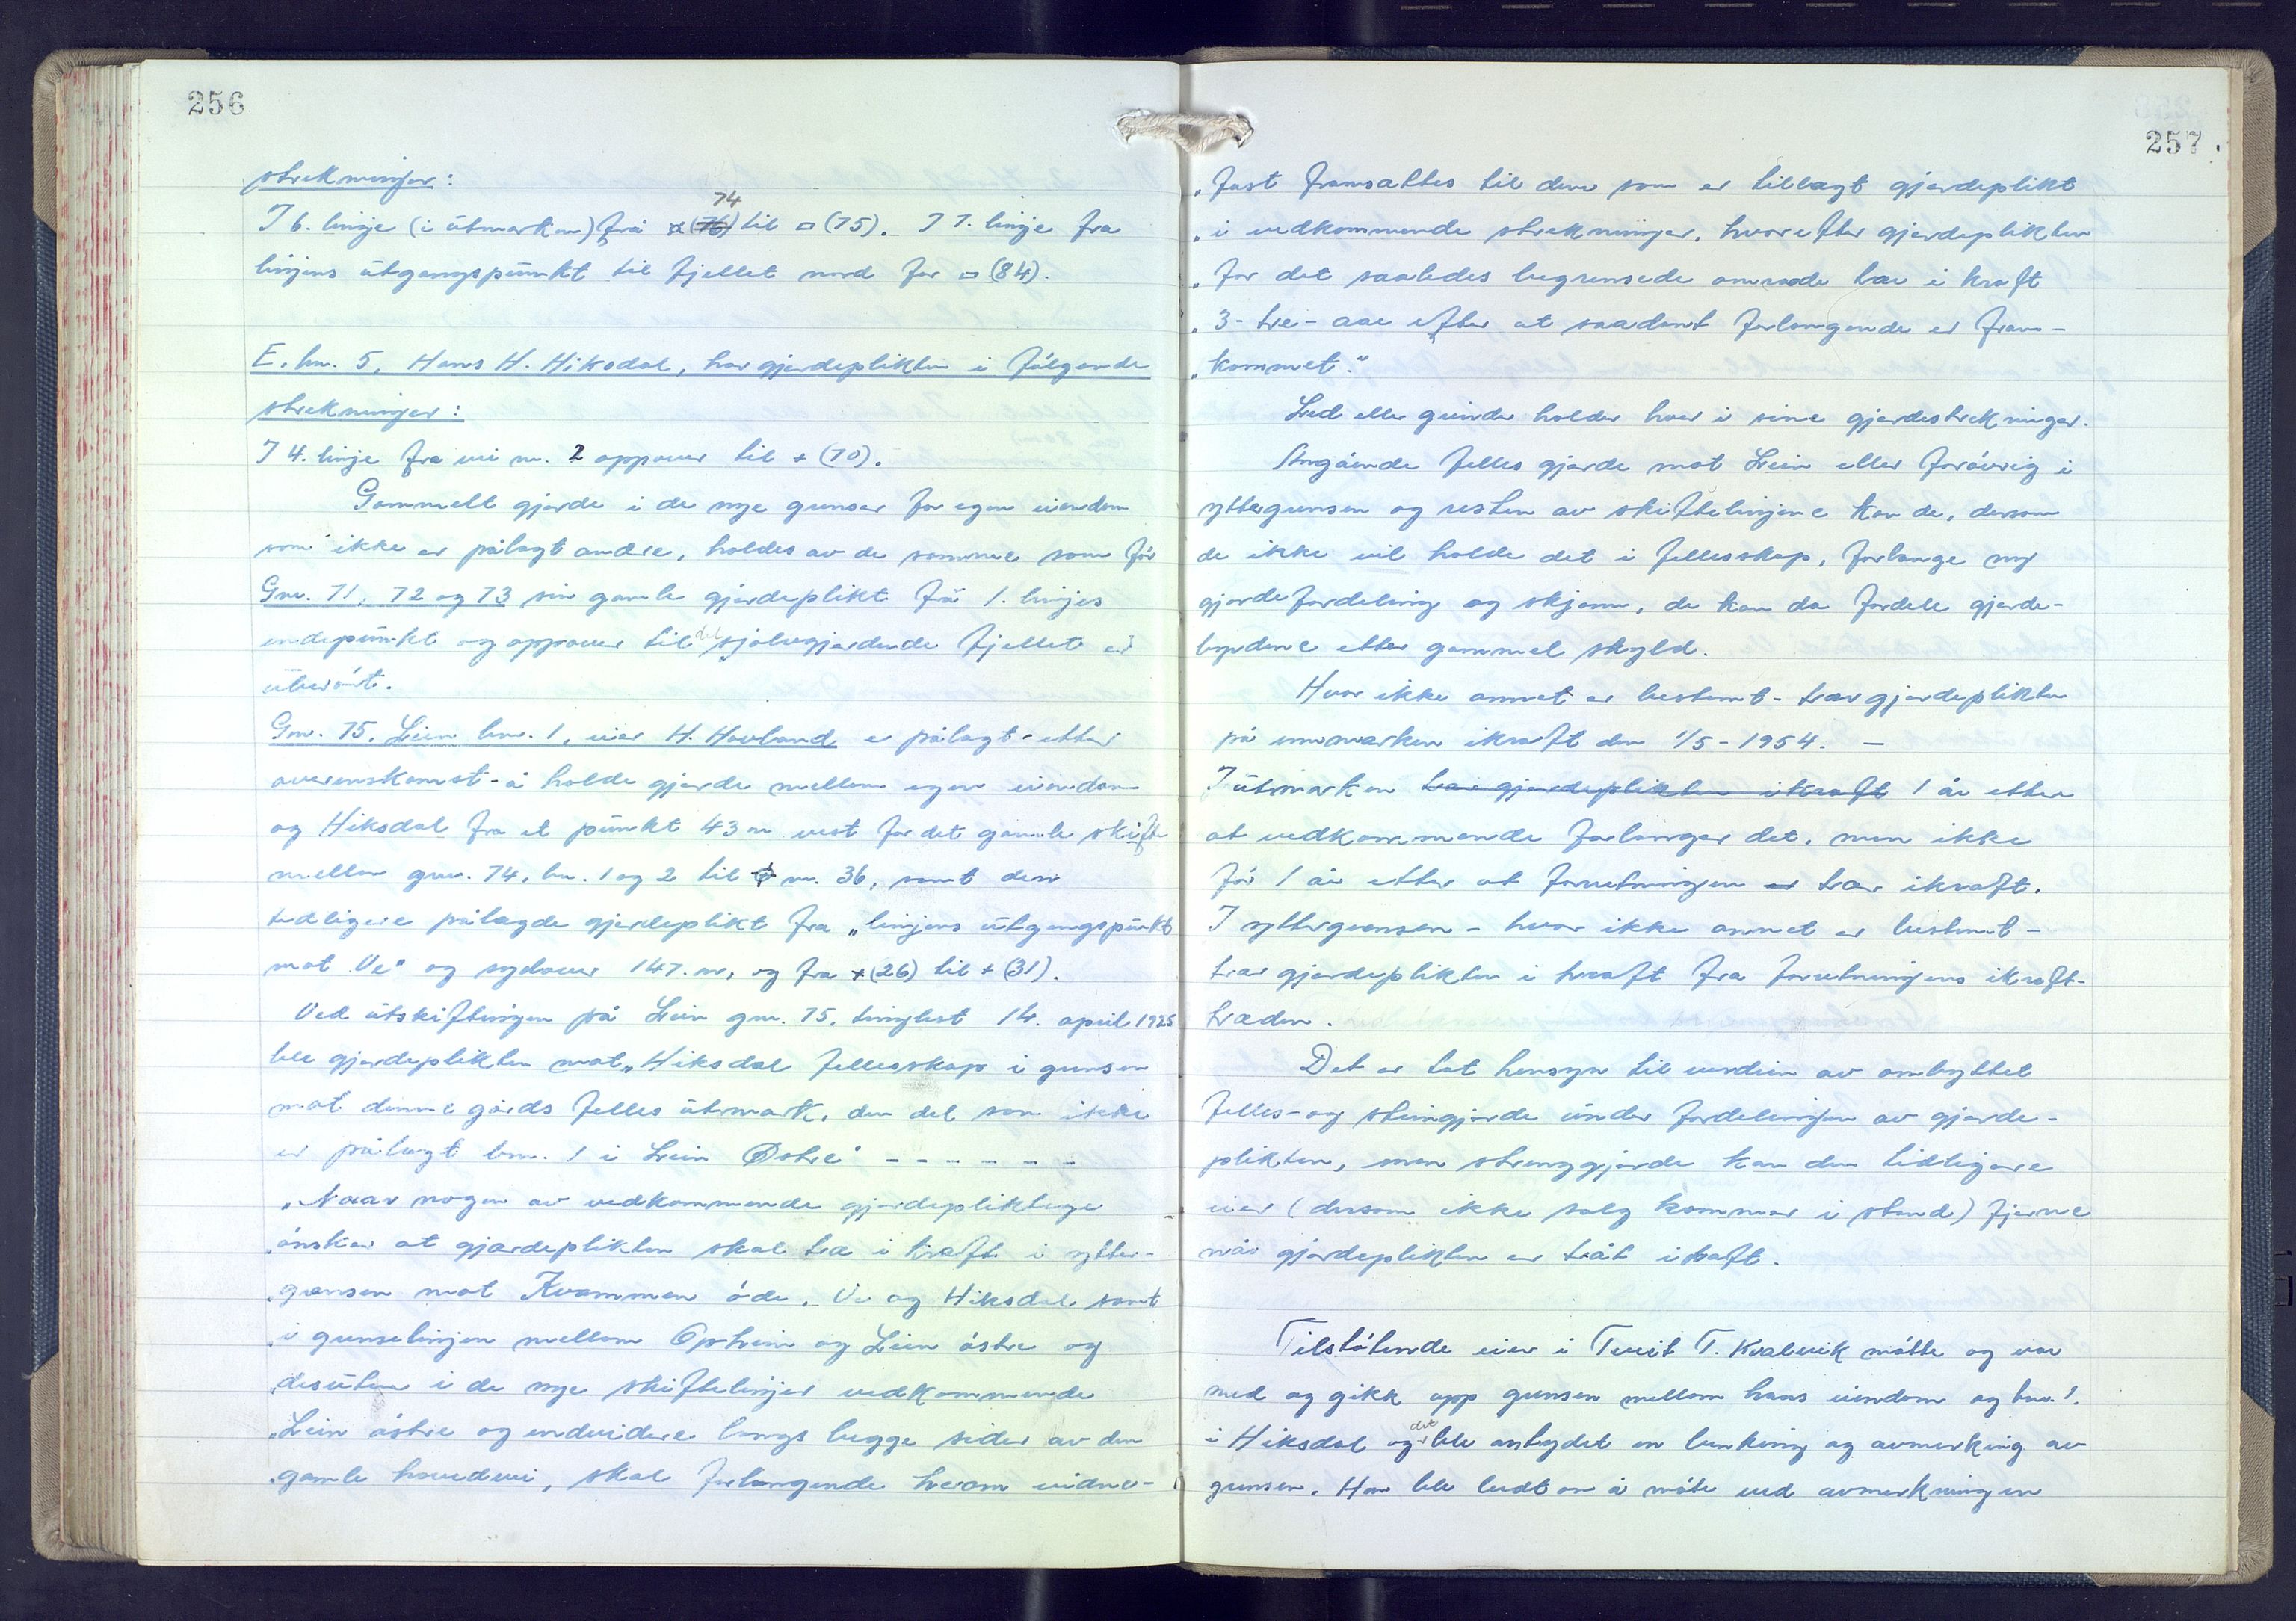 256
strekninger:
I 6. linje (i utmarken) frå ¤ (76) 74 til □ (75). I 7. linje fra
linjens utgangspunkt til fjellet nord for □ (84).
E. bnr. 5, Hans H. Hiksdal, har gjerdeplikten i følgende
strekninger:
I 4. linje fra vei nr. 2 oppover til + (70).
Gammelt gjerde i de nye grenser for egen eiendom
som ikke er pålagt andre, holdes av de samme som før
Gnr. 71, 72 og 73 sin gamle gjerdeplikt frå 1. linjes
endepunkt og oppover til det sjølvgjerdende fjellet er
uberørt.
Gnr. 75, Lein bnr. 1, eier H. Hovland er pålagt - etter
overenskomst - å holde gjerde mellom egen eiendom
og Hiksdal fra et punkt 43 m vest for det gamle skifte
mellom gnr. 74, bnr. 1 og 2 til nr. 36, samt den
tidligere pålagde gjerdeplikt fra „linjens utgangspunkt
mot Ve" og sydover 147. m, og fra + (26) til + (31).
Ved utskiftingen på Lein gnr. 75, tinglest 14. april 1925
ble gjerdeplikten mot „Hiksdal fellesskap i grensen
mot denne gårds felles utmark, den del som ikke
er pålagt bnr. 1 i Lein Østre" - - - - - -
„Naar nogen av vedkommende gjerdepliktige
„ønsker at gjærdeplikten skal træ i kraft i ytter-
„grænsen mot Kvammen øde, Ve og Hiksdal samt
„i grenselinjen mellom Opheim og Lein østre og
„desuten i de nye skiftelinjer vedkommende
„Lein østre og endvidere langs begge sider av den
„gamle hovedvei, skal forlangende herom vidne-
257.
„fast framsættes til dem som er tillagt gjerdeplikt
„i vedkommende strekninger, hvorefter gjerdeplikten
„for det saaledes begrensede omraade træ i kraft
„3 - tre - aar efter at saadant forlangende er fram-
„kommet."
Led eller grinder holder hver i sine gjerdestrekninger.
Angående felles gjerde mot Lein eller forøvrig i
yttergrensen og resten av skiftelinjene kan de, dersom
de ikke vil holde det i fellesskap, forlange ny
gjerdefordeling og skjønn, de kan da fordele gjerde-
byrdene etter gammel skyld.
Hvor ikke annet er bestemt - trær gjerdeplikten
på innmarken ikraft den 1/5 - 1954. —
I utmarken trær gjerdeplikten ikraft 1 år etter
at vedkommende forlanger det, men ikke
før 1 år etter at forretningen er trær ikraft.
I yttergrensen - hvor ikke annet er bestemt -
trær gjerdeplikten i kraft fra forretningens ikraft-
træden.
Det er tat hensyn til verdien av ombyttet
felles- og steingjerde under fordelingen av gjerde-
plikten, men strenggjerde kan den tidligere
eier (dersom ikke salg kommer i stand) fjerne
når gjerdeplikten er tråt ikraft.
Tilstøtende eier i Tveit T. Kvalvik møtte og var
med og gikk opp grensen mellom hans eiendom og bnr. 1.
i Hiksdal og det ble anbydet en lenking og avmerking av
grensen. Han ble bedt om å møte ved avmerkningen